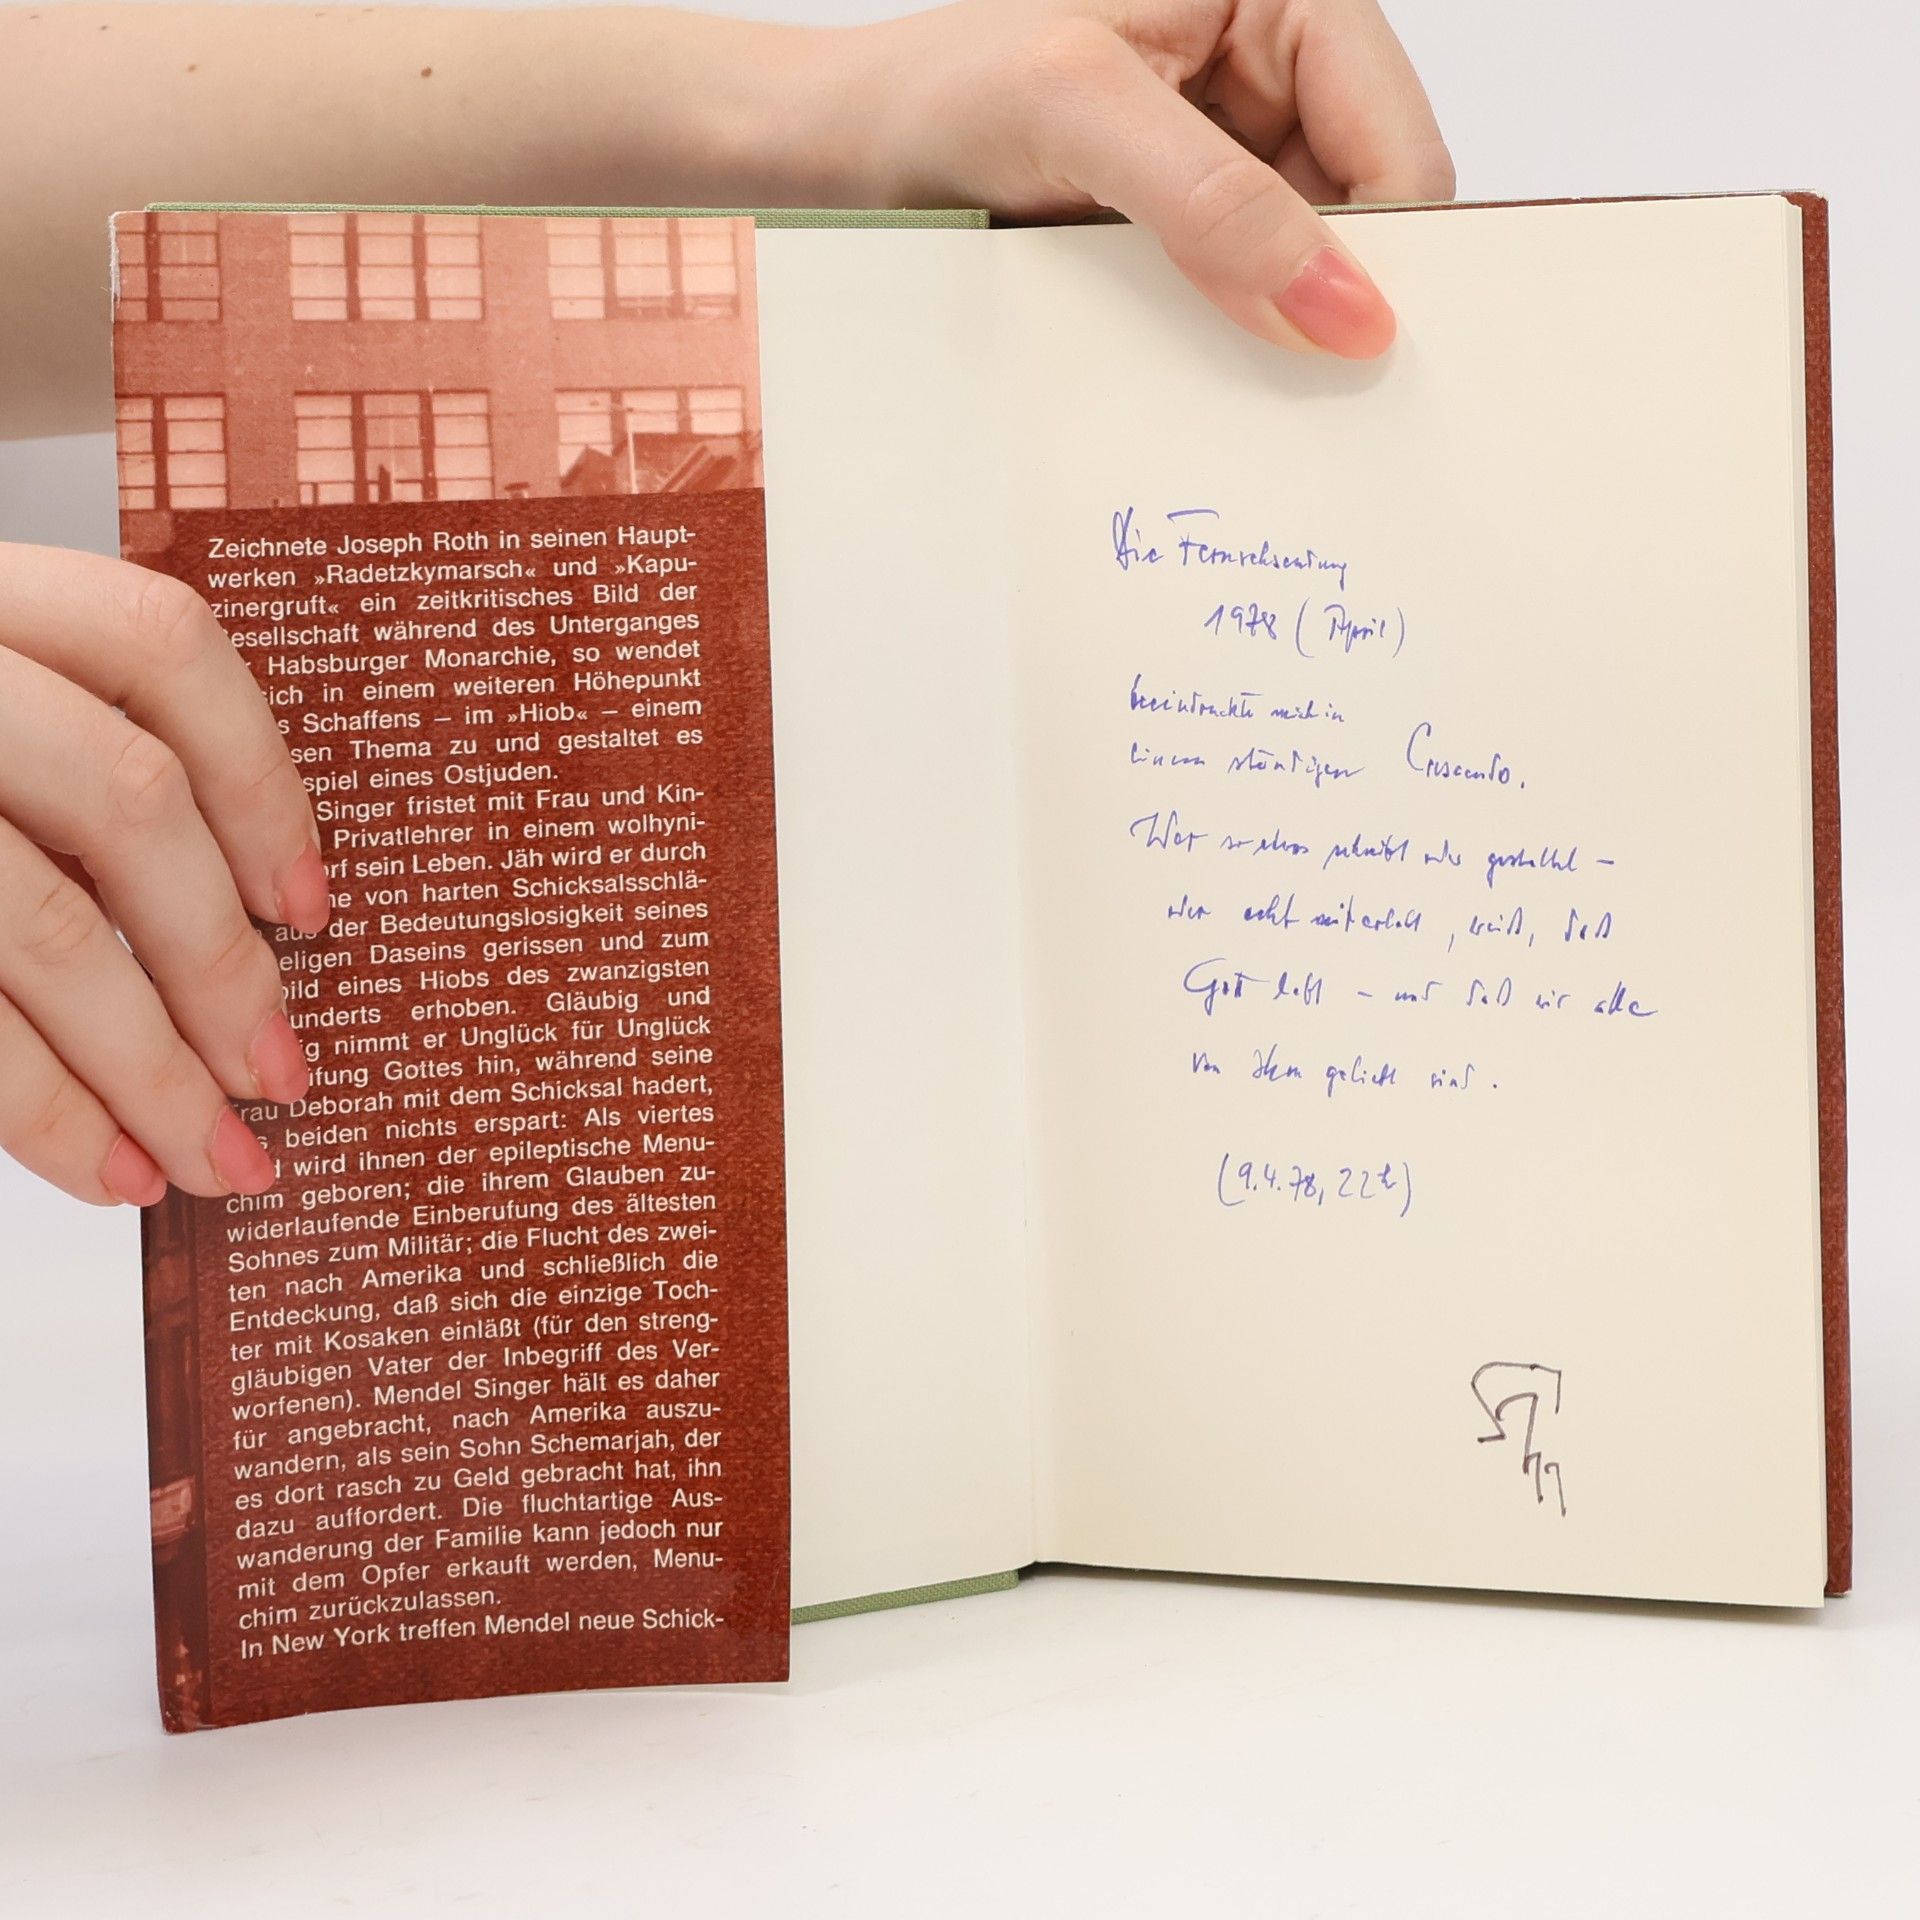 Zeichnete Joseph Roth in seinen Haupt-
werken »Radetzkymarsch« und »Kapu-
zinergruft« ein zeitkritisches Bild der
esellschaft während des Unterganges
Habsburger Monarchie, so wendet
sich in einem weiteren Höhepunkt
s Schaffens – im »Hiob« – einem
sen Thema zu und gestaltet es
spiel eines Ostjuden.
Singer fristet mit Frau und Kin-
Privatlehrer in einem wolhyni-
rf sein Leben. Jäh wird er durch
ne von harten Schicksalsschlä-
aus der Bedeutungslosigkeit seines
eligen Daseins gerissen und zum
bild eines Hiobs des zwanzigsten
underts erhoben. Gläubig und
ig nimmt er Unglück für Unglück
üfung Gottes hin, während seine
Frau Deborah mit dem Schicksal hadert,
s beiden nichts erspart: Als viertes
d wird ihnen der epileptische Menu-
chim geboren; die ihrem Glauben zu-
widerlaufende Einberufung des ältesten
Sohnes zum Militär; die Flucht des zwei-
ten nach Amerika und schließlich die
Entdeckung, daß sich die einzige Toch-
ter mit Kosaken einläßt (für den streng-
gläubigen Vater der Inbegriff des Ver-
worfenen). Mendel Singer hält es daher
für angebracht, nach Amerika auszu-
wandern, als sein Sohn Schemarjah, der
es dort rasch zu Geld gebracht hat, ihn
dazu auffordert. Die fluchtartige Aus-
wanderung der Familie kann jedoch nur
mit dem Opfer erkauft werden, Menu-
chim zurückzulassen.
In New York treffen Mendel neue Schick-
Die Fernsehsendung
1978 (April)
beeindruckte mich in
einem ständigen Crescendo.
Wer so etwas schreibt oder gestaltet –
wer echt miterlebt, weiß, daß
Gott lebt – und daß wir alle
von Ihm geliebt sind.
(9.4.78, 22h)
77